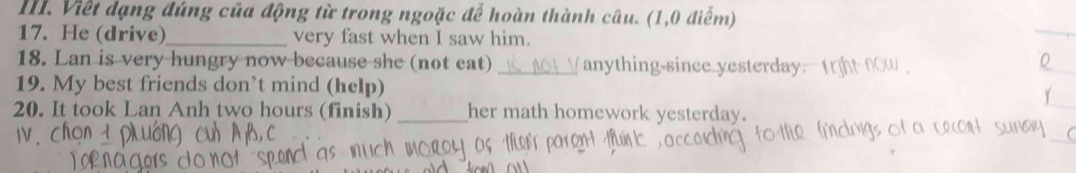 III. Viết dạng đúng của động từ trong ngoặc để hoàn thành câu. (1,0 điểm)
17. He (drive)____________ very fast when I saw him.
18. Lan is very hungry now because she (not eat) ________ anything since yesterday. right now.
19. My best friends don't mind (help)
20. It took Lan Anh two hours (finish) _______her math homework yesterday.
IV. chọn 1 phương án A, B, C
Teenagers do not spend as much money as their parent think, according to the findings of a recent survey
old